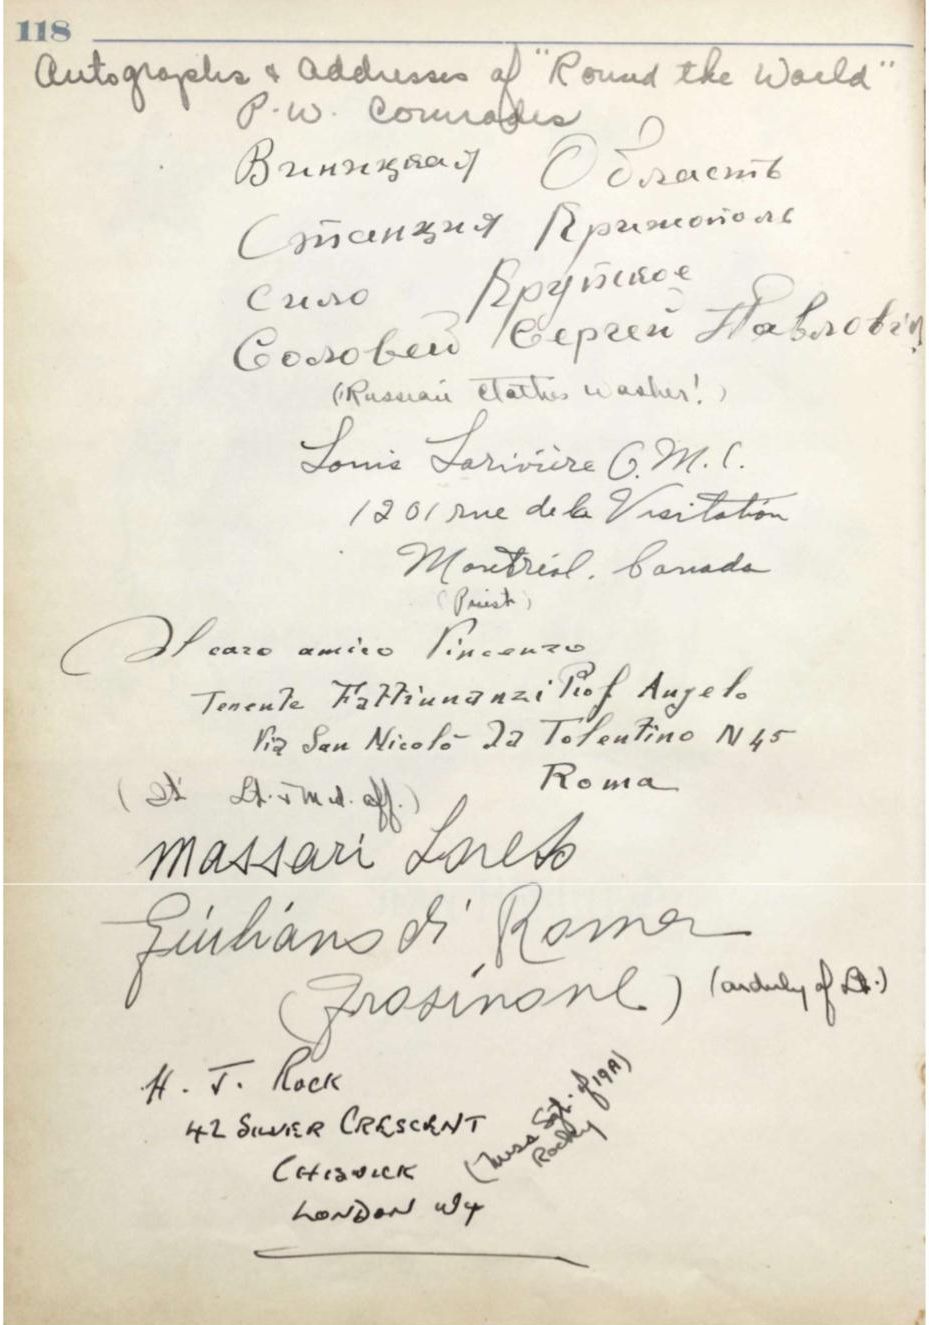 118
Autographs & Addresses of "Round the World"
P.W. Comrades
Виницкая Область
Станция Крижополь
Сило Круткое
Соловей Сергей Павлович
(Russian Clothes washer!)
Louis Larivière C.M.C.
1201 rue de la Visitation
Montréal. Canada
(Priest)
Al caro amico Vincenzo
Tenente Fattinnanzi Prof Angelo
Via San Nicolò Da Tolentino N 45
Roma
(It Lt. & Md. off.)
Massari Loreto
Giuliano di Roma
(Frosinone) (orderly of Lt.)
H. J. Rock
42 SILVER CRESCENT
CHISWICK
LONDON W4
(Mess Sgt. of 19A)
Rocky